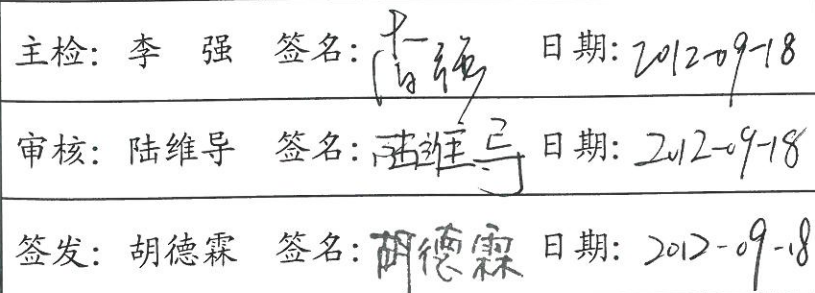 主检: 李 强 签名: 李强 日期: 2012-09-18
审核: 陆维导 签名: 陆维导 日期: 2012-09-18
签发: 胡德霖 签名: 胡德霖 日期: 2012-09-18